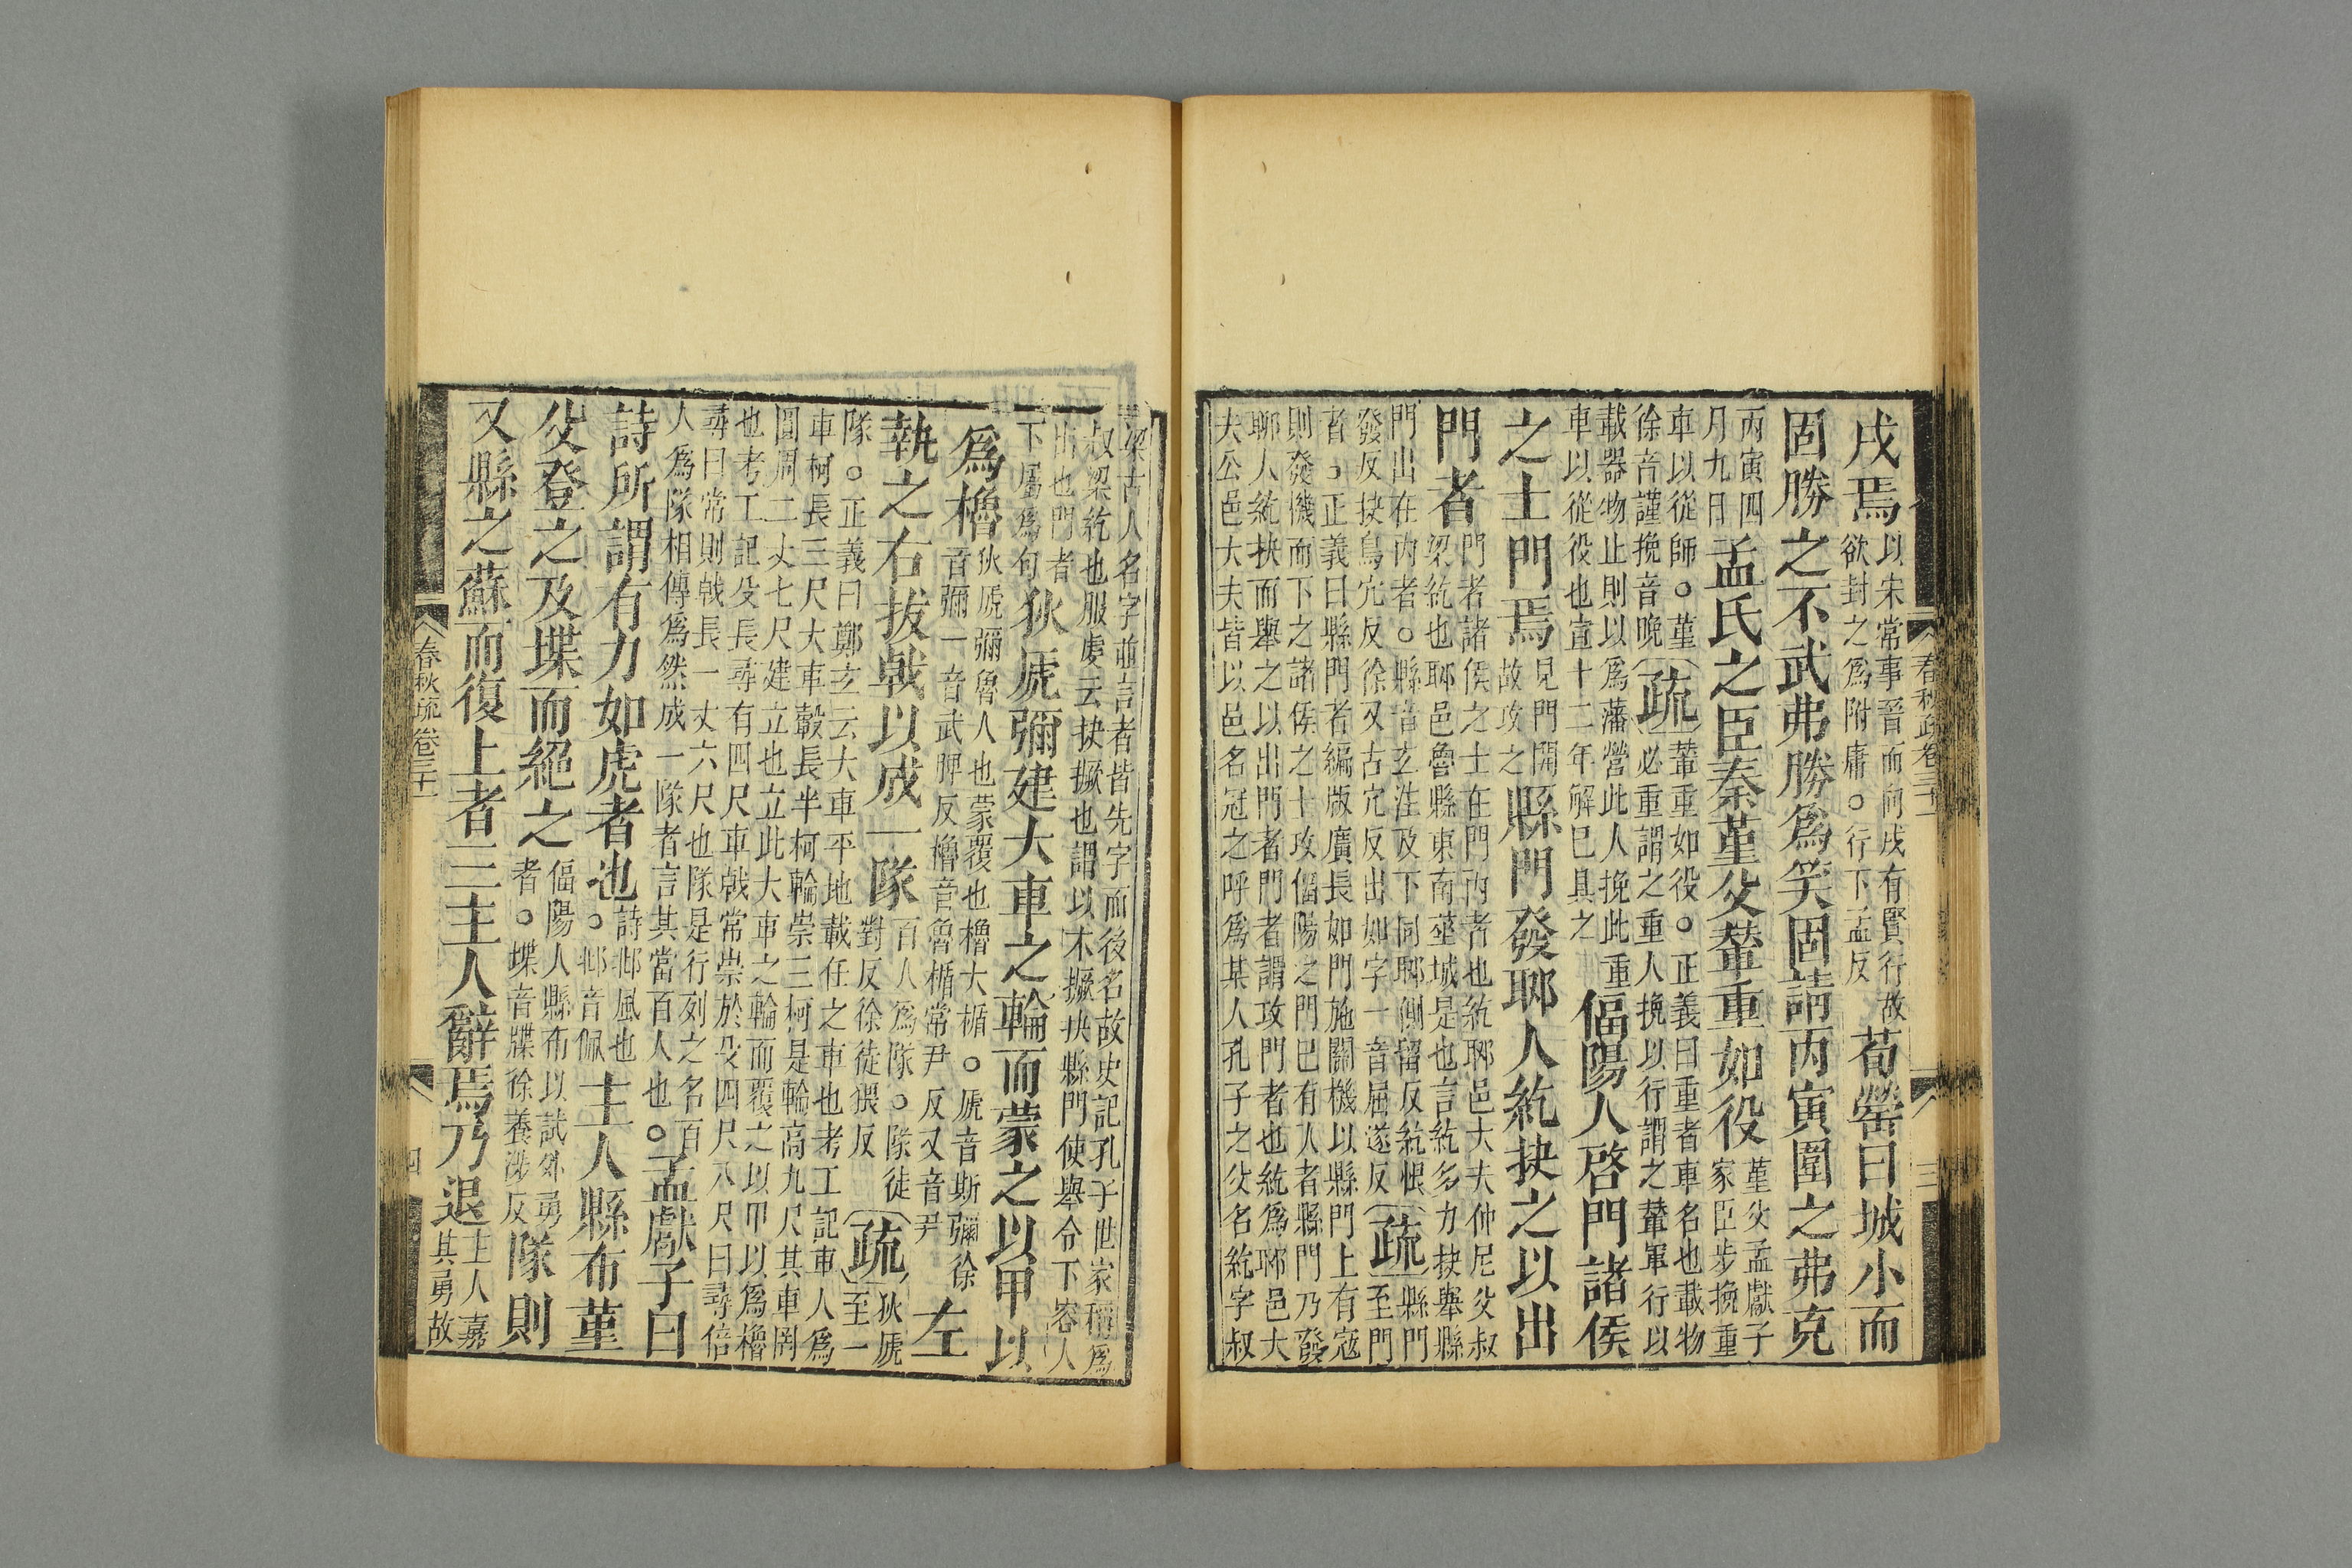 戌焉以宋常事晉而向戌有賢行故欲封之爲附庸○行下孟反荀罃曰城小而
固勝之不武弗勝爲笑固請丙寅圍之弗克
丙寅四月九日孟氏之臣秦堇父輦重如役堇父孟獻子家臣步挽重
車以從師○堇徐音謹挽音晚疏輦重如役○正義曰重者車名也載物必重謂之重人挽以行謂之輦軍行以
載器物止則以爲藩營此人挽此重車以從役也宣十二年解巳具之偪陽人啓門諸侯
之士門焉見門開故攻之縣門發郰人紇抉之以出
門者門者諸侯之士在門內者也紇郰邑大夫仲尼父叔梁紇也郰邑魯縣東南莝城是也言紇多力抉舉縣
門出在內者○縣音玄注及下同郰側留反紇恨發反抉烏穴反徐又古穴反出如字一音屈遂反疏縣門至門
者○正義曰縣門者編版廣長如門施關機以縣門上有寇則發機而下之諸侯之士攻偪陽之門巳有入者縣門乃發
郰人紇抉而舉之以出門者門者謂攻門者也紇爲郰邑大夫公邑大夫皆以邑名冠之呼爲某人孔子之父名紇字叔
梁古人名字並言者皆先字而後名故史記孔子世家稱爲叔梁紇也服虔云抉撅也謂以木撅抉縣門使舉令下容人
出也門者下屬爲句狄虒彌建大車之輪而蒙之以甲以
爲櫓狄虒彌魯人也蒙覆也櫓大楯○虒音斯彌徐音彌一音武脾反櫓音魯楯常尹反又音尹左
執之右拔戟以成一隊百人爲隊○隊徒對反徐徒猥反疏狄虒至一
隊○正義曰鄭玄云大車平地載任之車也考工記車人爲車柯長三尺大車轂長半柯輪崇三柯是輪高九尺其車罔
圍周二丈七尺建立也立此大車之輪而覆之以甲以爲櫓也考工記殳長尋有四尺車戟常崇於殳四尺八尺曰尋倍
尋曰常則戟長一丈六尺也隊是行列之名百人爲隊相傳爲然成一隊者言其當百人也○孟獻子曰
詩所謂有力如虎者也詩邶風也○邶音佩主人縣布堇
父登之及堞而絕之偪陽人縣布以試外勇者○堞音牒徐養涉反隊則
又縣之蘇而復上者三主人辭焉乃退主人嘉其勇故
春秋疏卷三十一
三
春秋疏卷三十一
四